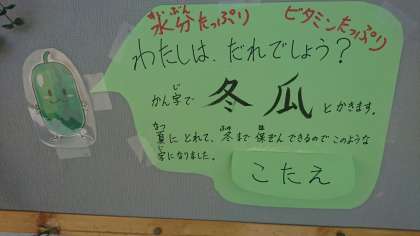 水分たっぷり
ビタミンたっぷり
わたしは、だれでしょう？
かん字で 冬瓜 とかきます。
夏に とれて、冬まで 保ぞん できるので このような
字になりました。
こたえ